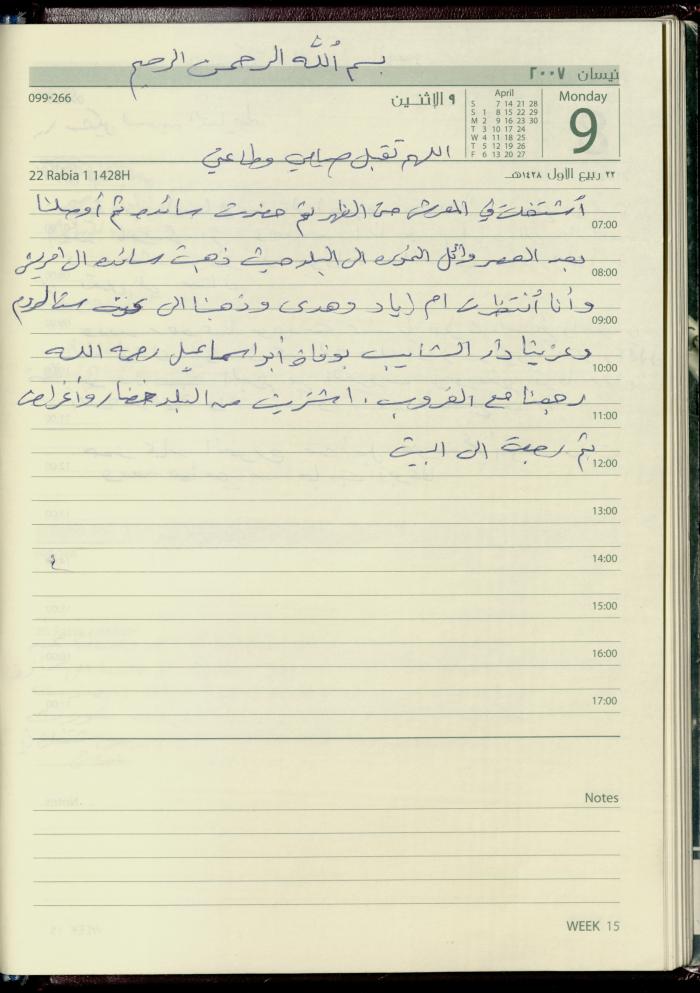 بسم الله الرحمن الرحيم
نيسان ٢٠٠٧
099-266
٩ الإثنـين
April
S 7 14 21 28
S 1 8 15 22 29
M 2 9 16 23 30
T 3 10 17 24
W 4 11 18 25
T 5 12 19 26
F 6 13 20 27
Monday
9
اللهم تقبل صيامي وطاعتي
22 Rabia 1 1428H
٢٢ ربيع الأول ١٤٢٨هـ
أشتغلت في المعرش حتى الظهر ثم حضرت سائده ثم أوصلنا
07:00
بعد العصر وائل الى البلد حيث ذهبت سائده ال
08:00
وأنا أنتظرت ام إياد وهدى وذهبنا الى
09:00
وعزينا دار الشايب بوفاة أبو اسماعيل رحمه الله
10:00
رجعنا مع الغروب. اشتريت من البلد خضار وأغراض
11:00
ثم رجعت الى البيت
12:00
13:00
14:00
15:00
16:00
17:00
Notes
WEEK 15